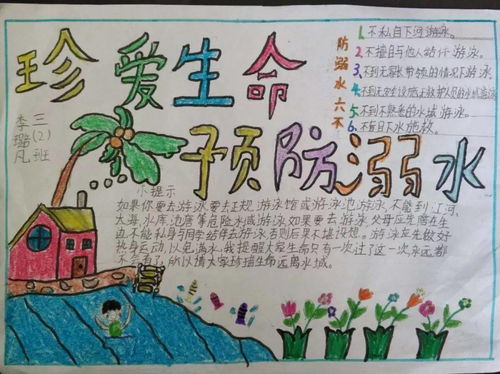 珍爱生命
预防溺水
三(2)班
李璐凡
防溺水六不
1.不私自下河游泳。
2.不擅自与他人结伴游泳。
3.不到无家长带领的情况下游泳
4.不到无安全设施无救护人员的水域游泳
5.不到不熟悉的水域游泳。
6.不盲目下水施救。
小提示
如果你要去游泳要去正规游泳馆或游泳池游泳,不能到江河、
大海、水库池唐等危险水域游泳如果要去游泳父母应先陪在生
边不能私身与同学结伴去游泳否则后果不堪设想。游泳应先做好
热身运动,以免溺水,我提醒大家生命只有一次过了这一次永远都
不会有了,所以请大家珍惜生命远离水域。